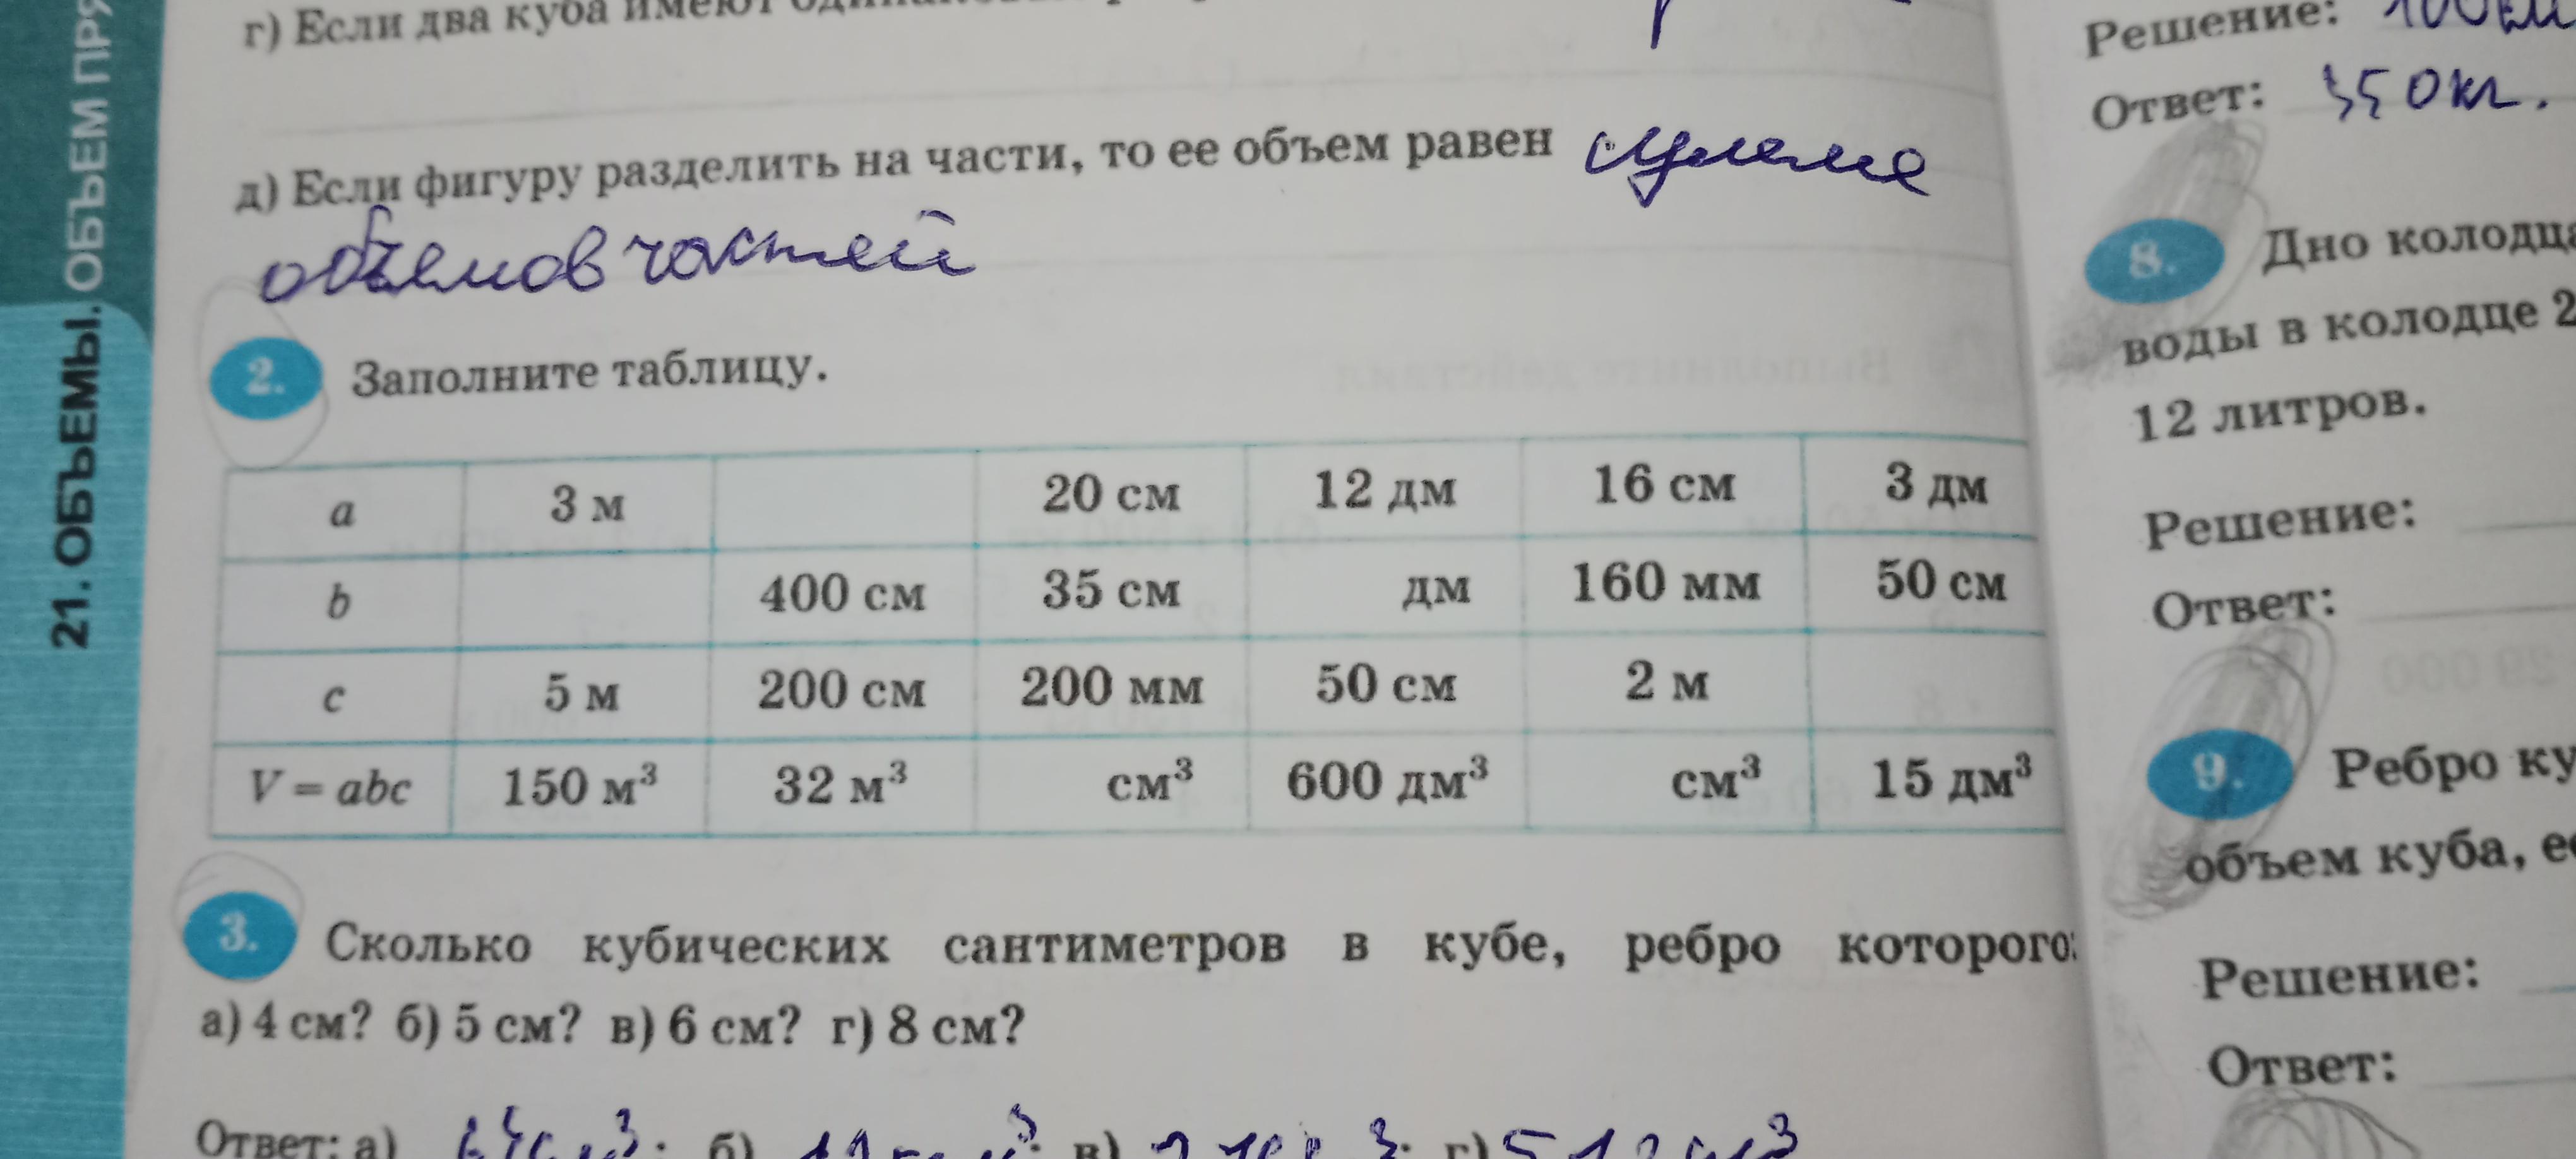 21. ОБЪЕМЫ. ОБЪЕМ
г) Если два куба имеют
д) Если фигуру разделить на части, то ее объем равен сумме
объемов частей
2. Заполните таблицу.
a 3 м 20 см 12 дм 16 см 3 дм
b 400 см 35 см дм 160 мм 50 см
c 5 м 200 см 200 мм 50 см 2 м
V = abc 150 м³ 32 м³ см³ 600 дм³ см³ 15 дм³
3. Сколько кубических сантиметров в кубе, ребро которого:
а) 4 см? б) 5 см? в) 6 см? г) 8 см?
Ответ: а) б) в) г) 512 см³
Решение:
Ответ: 350 кг.
8. Дно колодца
воды в колодце 2
12 литров.
Решение:
Ответ:
9. Ребро ку
объем куба, ес
Решение:
Ответ: